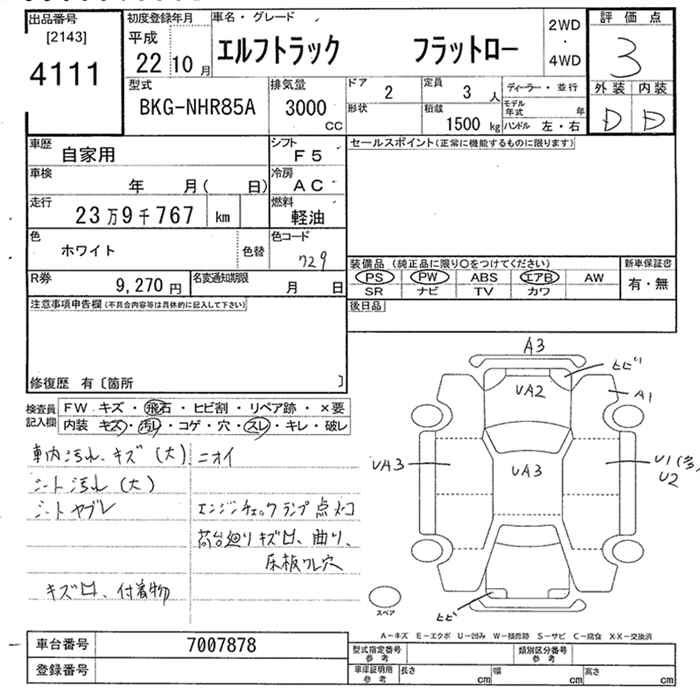 出品番号
[2143]
4111
初度登録年月
平成
22 10 月
車名・グレード
エルフトラック フラットロー
2WD
・
4WD
評価点
3
外装 内装
D D
型式
BKG-NHR85A
排気量
3000 CC
ドア 2
形状
定員 3 人
積載 1500 kg
ディーラー・並行
モデル年式 年
ハンドル 左・右
車歴 自家用
シフト F5
車検 年 月( 日)
冷房 AC
走行 23万9千767 km
燃料 軽油
色 ホワイト 色替
色コード 729
R券 9,270円
名変通知期限 月 日
セールスポイント(正常に機能するものに限ります)
装備品(純正品に限り〇をつけてください)
PS PW ABS エアB AW
SR ナビ TV カワ
新車保証書
有・無
後日品
注意事項申告欄(不具合内容等は具体的に記入して下さい)
修復歴 有〔箇所 〕
検査員記入欄
FW キズ・飛石・ヒビ割・リペア跡・×要
内装 キズ・汚レ・コゲ・穴・スレ・キレ・破レ
車内汚れ、キズ(大)ニオイ
シート汚れ(大)
シートヤブレ
エンジンチェックランプ点灯
荷台廻りキズ凹、曲り、
床板ワレ穴
キズ凹、付着物
A3
ヒビ
UA2
A1
UA3
UA3
U1(多)
U2
ヒビ
スペア
A-キズ E-エクボ U-凹み W-補修跡 S-サビ C-腐食 XX-交換済
車台番号 7007878
登録番号
型式指定番号 参考
類別区分番号 参考
車庫証明用 参考
長さ cm
幅 cm
高さ cm